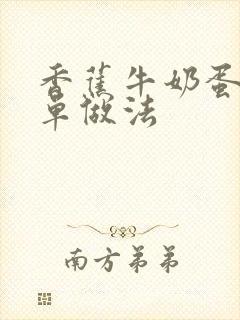 香蕉牛奶蛋
单做法
南方弟弟